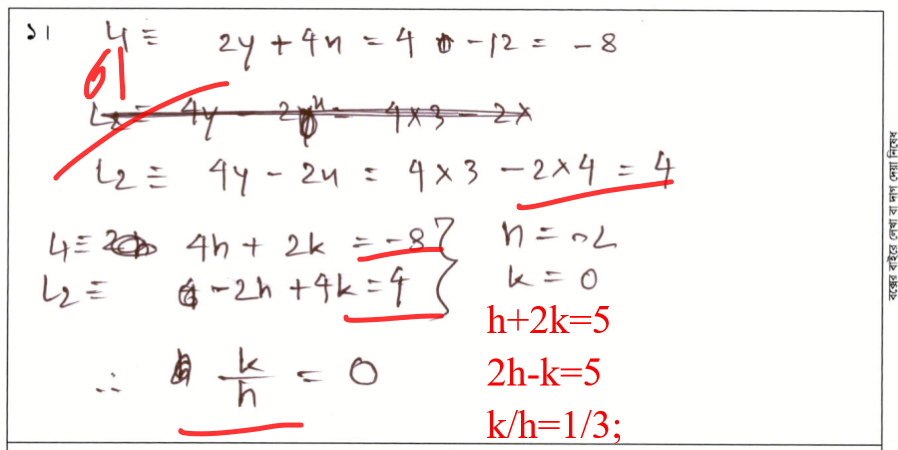 ১।
L₁ ≡ 2y + 4x = 4 - 12 = -8
L₂ ≡ 4y - 2x = 4×3 - 2×
L₂ ≡ 4y - 2x = 4×3 - 2×4 = 4
L₁ ≡ 4h + 2k = -8
h = -2
L₂ ≡ -2h + 4k = 4
k = 0
h+2k=5
2h-k=5
∴ k/h = 0
k/h=1/3;
বক্সের বাইরে লেখা বা দাগ দেয়া নিষেধ